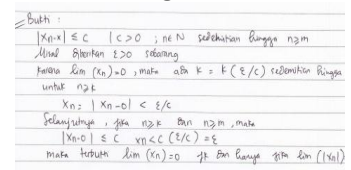 Bukti :
|xn-x| ≤ c | c>0 ; n∈N sedemikian hingga n≥m
Misal diberikan ε>0 sebarang
karena lim (xn)=0, maka ada K = K (ε/c) sedemikian hingga
untuk n≥k
Xn: | Xn-0| < ε/c
Selanjutnya, jika n≥k dan n≥m, maka
|Xn-0| ≤ c xn<c (ε/c)=ε
maka terbukti lim (xn)=0 jk dan hanya jika lim (|xn|)